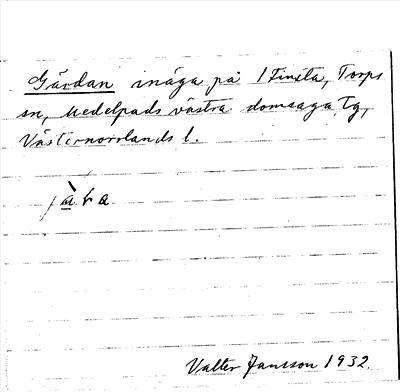 Gärdan inäga på 1 Finsta, Torps
sn, Medelpads västra domsaga, tg,
Västernorrlands l.
Valter Jansson 1932.